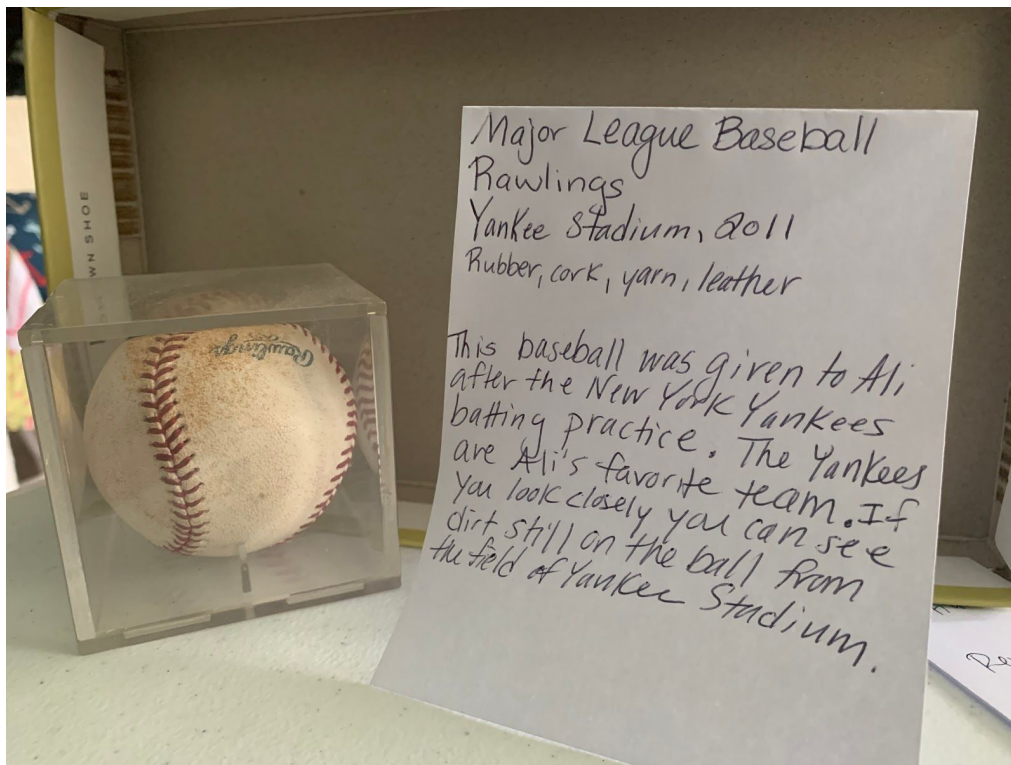 WN SHOE
Rawlings
Major League Baseball
Rawlings
Yankee Stadium, 2011
Rubber, cork, yarn, leather
This baseball was given to Ali
after the New York Yankees
batting practice. The Yankees
are Ali's favorite team. If
you look closely you can see
dirt still on the ball from
the field of Yankee Stadium.